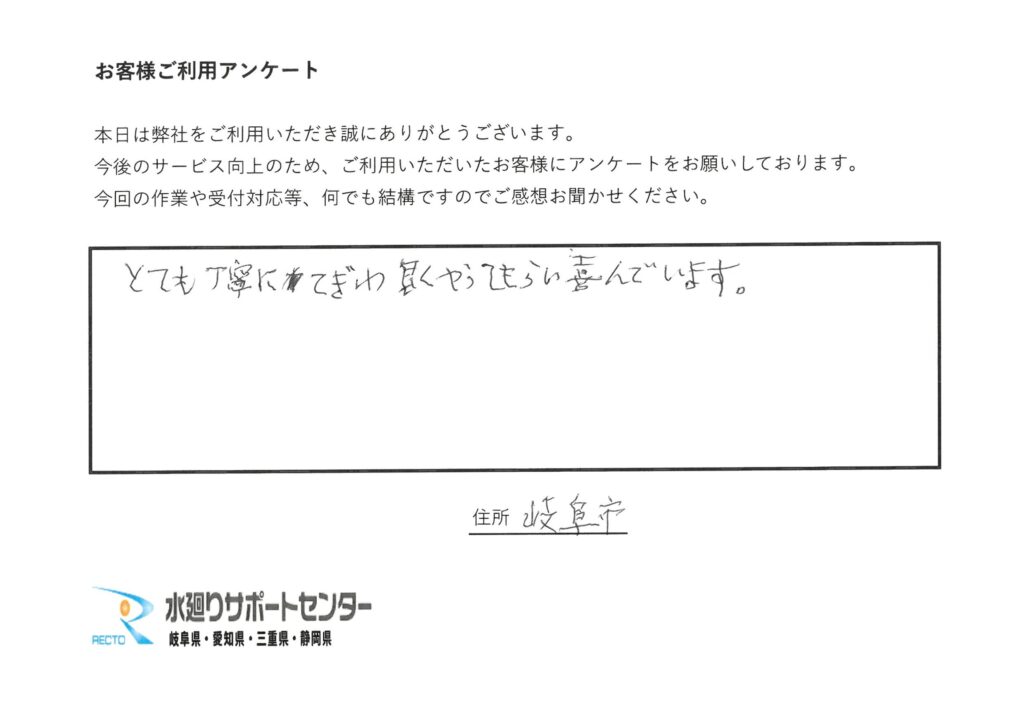 お客様ご利用アンケート
本日は弊社をご利用いただき誠にありがとうございます。
今後のサービス向上のため、ご利用いただいたお客様にアンケートをお願いしております。
今回の作業や受付対応等、何でも結構ですのでご感想お聞かせください。
とても丁寧にてぎわ良くやってもらい喜んでいます。
住所 岐阜市
水廻りサポートセンター
RECTO 岐阜県・愛知県・三重県・静岡県